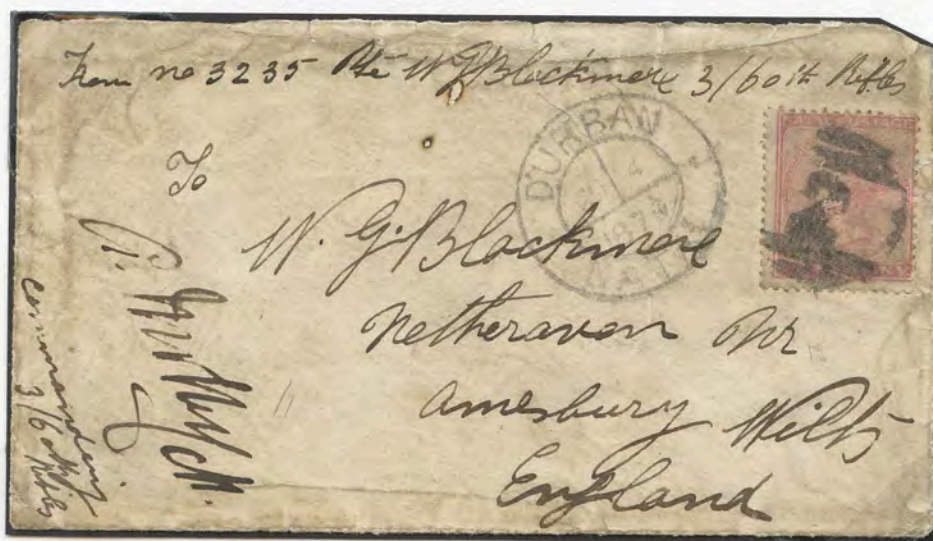 From no 3235 Pte W G Blackmore 3/60th Rifles
To
W. G. Blackmore
Netheravon Nr
Amesbury Wilts
England
Commanding
3/60th Rifles
DURBAN
4
187
NATAL